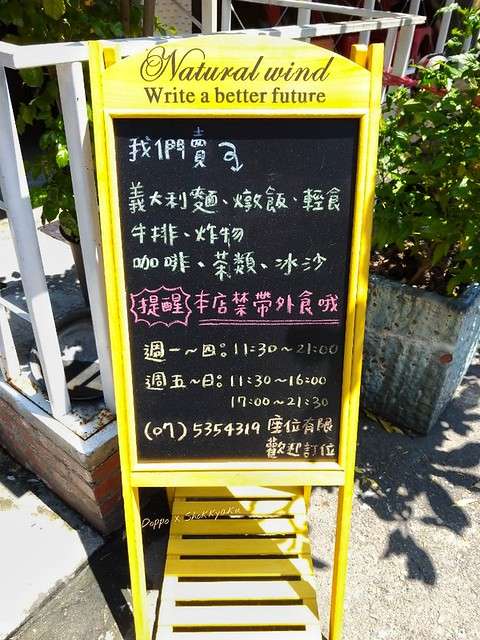 Natural wind
Write a better future
我們賣
義大利麵、燉飯、輕食
牛排、炸物
咖啡、茶類、冰沙
提醒 本店禁帶外食哦
週一~四: 11:30~21:00
週五~日: 11:30~16:00
17:00~21:30
(07) 5354319 座位有限
歡迎訂位
Doppo x Shokkyaku